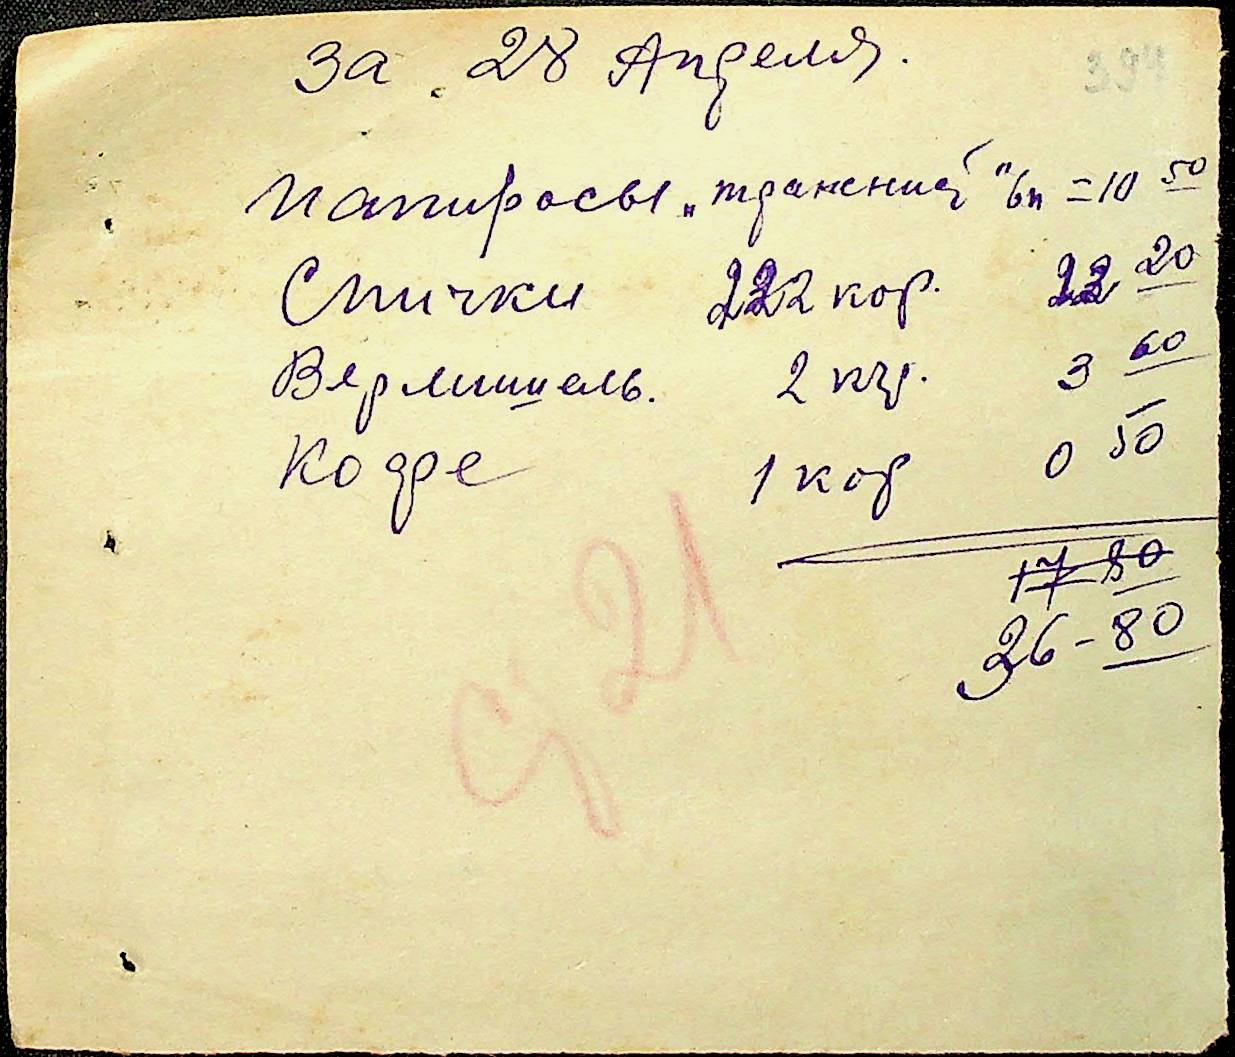 за 28 Апреля.
394
Папиросы 6п = 10 50
Спички 222 кор. 22 20
Вермишель. 2 кг. 3 60
Кофе 1 кор 0 50
17 80
36 - 80
21